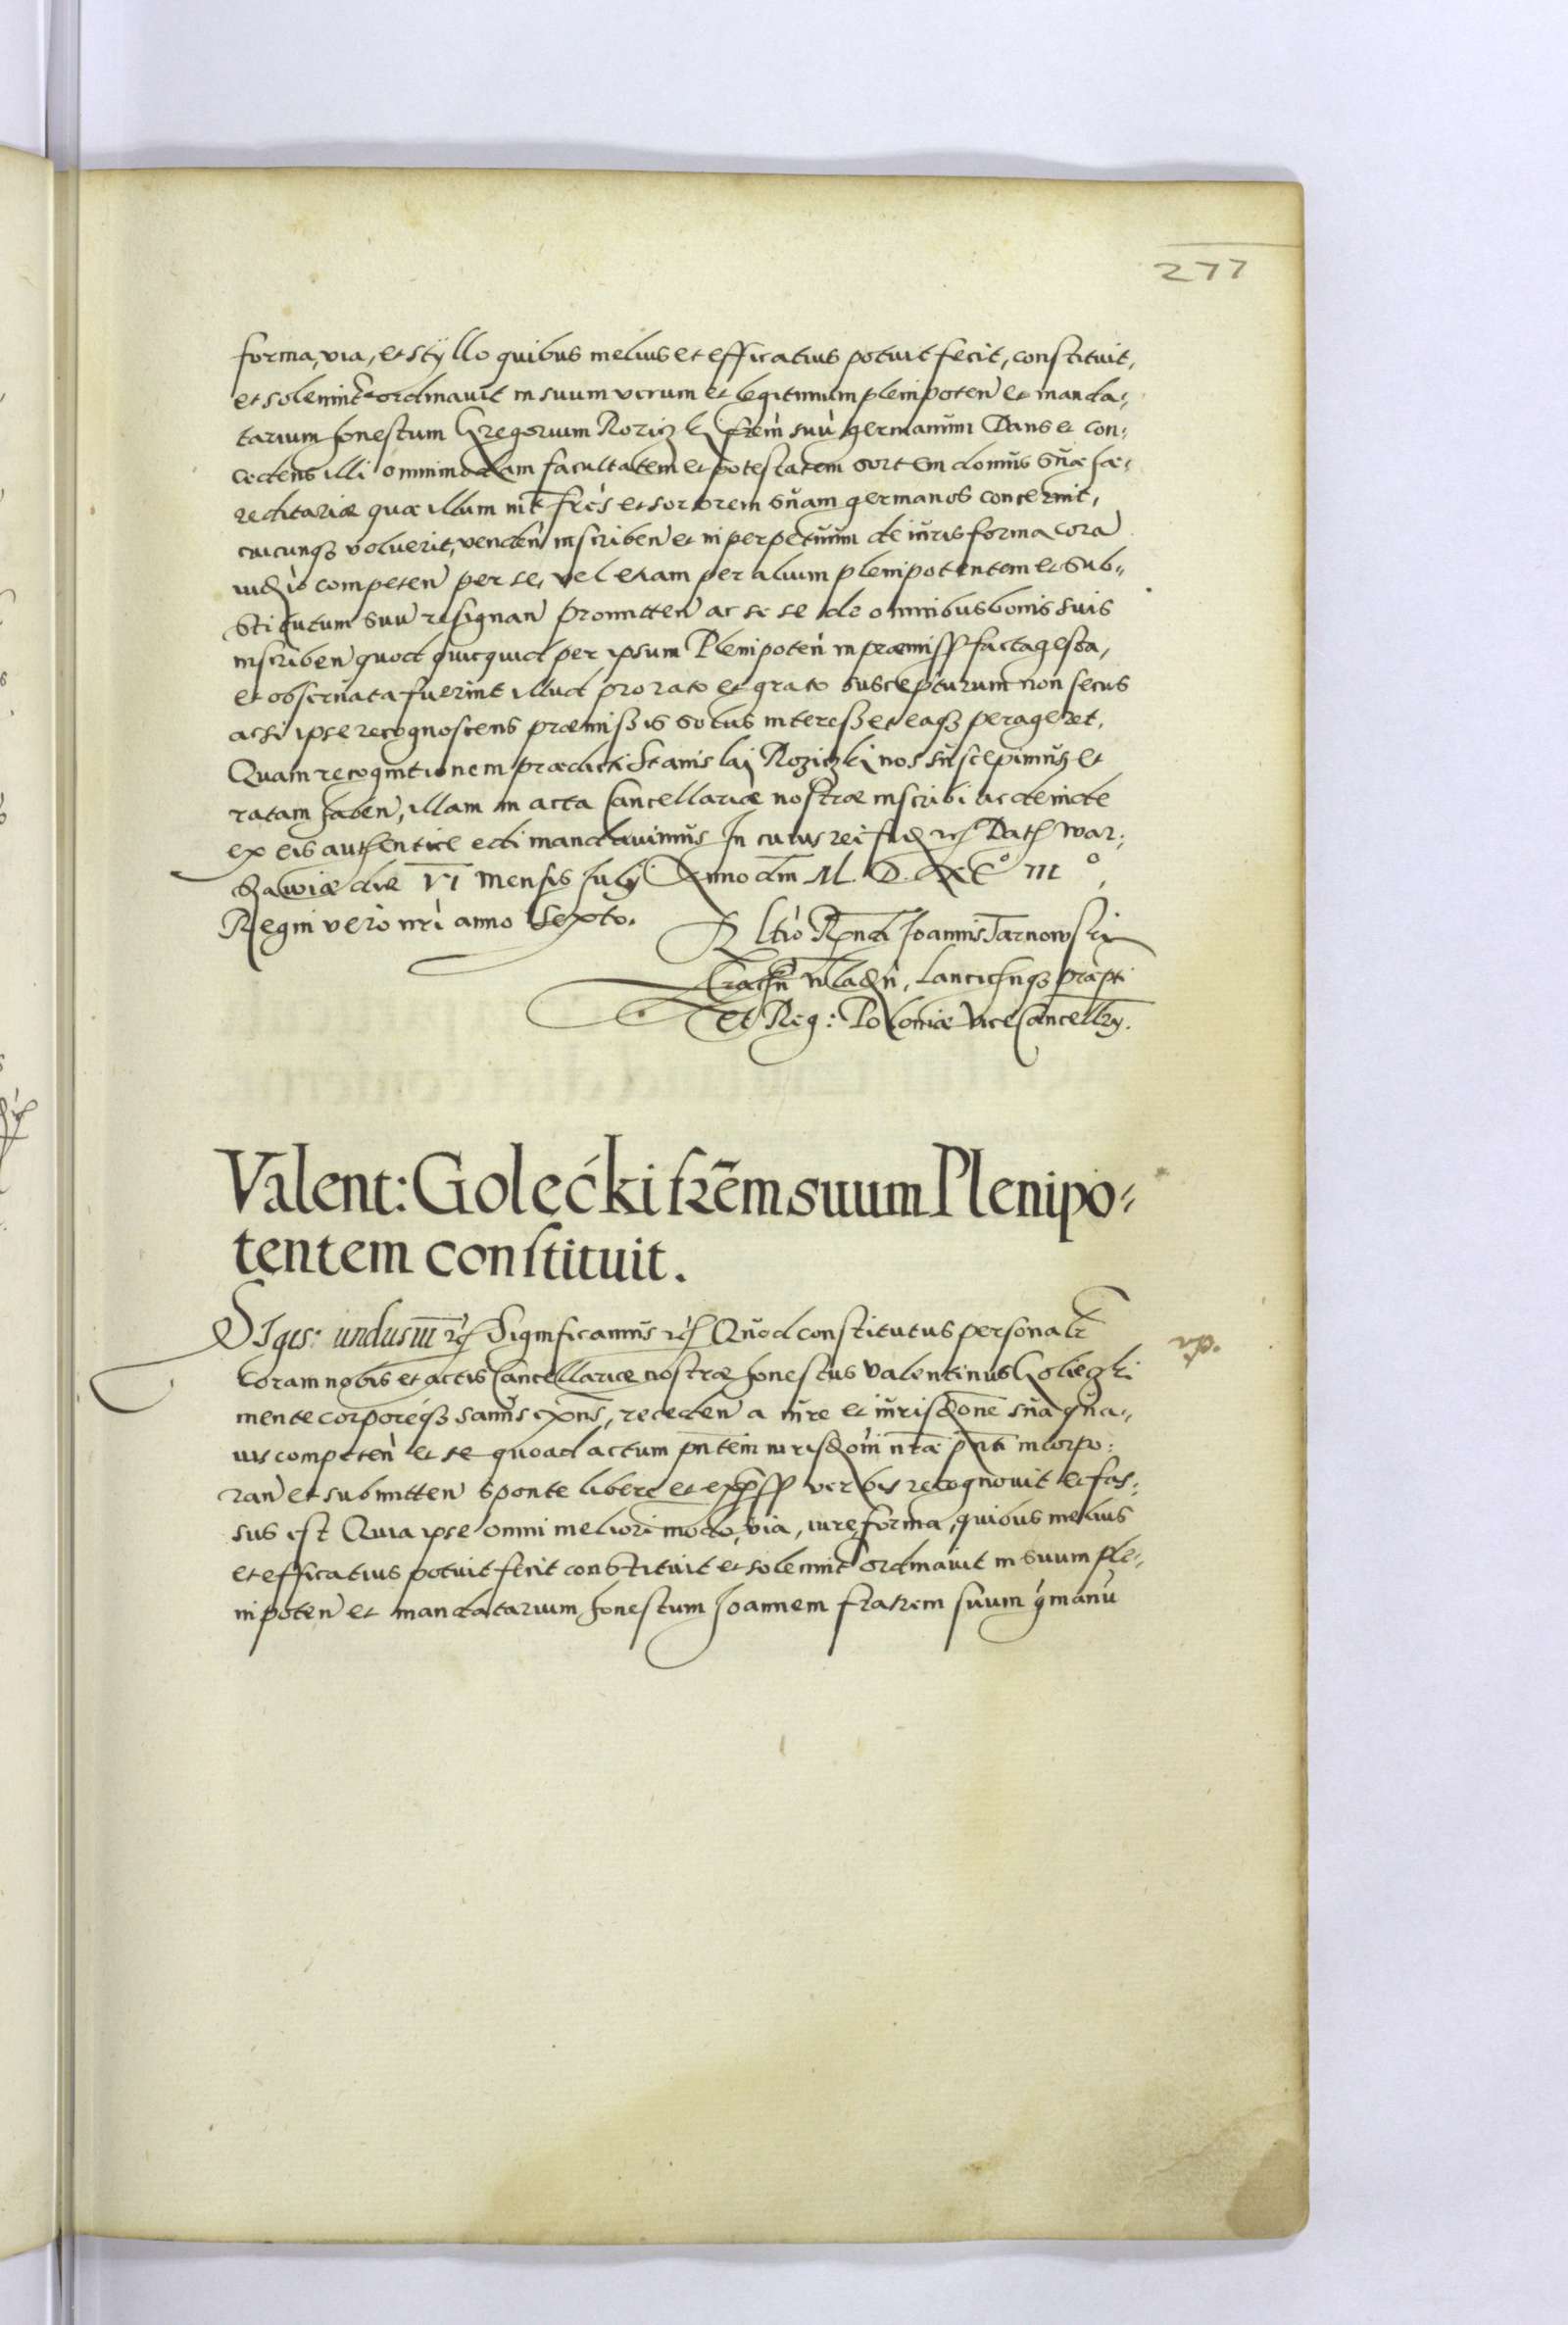 277
forma, via, et styllo quibus melius et efficatius potuit fecit, constituit,
et solennit̃ ordinavit in suum verum et legitimum plenipoten̄ et manda-
tarium honestum Gregorium Rozicz ki fr̃em suū germanum Dans et con-
cedens illi omnimodam facultatem et potestatem sortem domus suæ hæ-
reditariæ quæ illum int̃ fr̃es et sororem suam germanos concernit,
cuicunqȝ voluerit, venden̄ inscriben̄ et in perpetuum de iuris forma corā
iud̃io competen̄ per se, vel etiam per alium plenipotentem et sub-
stitutum suū resignan̄ promitten̄ ac se se de omnibus bonis suis
inscriben̄ quod quicquid per ipsum Plenipoten̄ in præmiss̃ facta gesta,
et observata fuerint illud pro rato et grato suscepturum non secus
ac si ipse recognoscens præmissis solus interesset eaqȝ perageret.
Quam recognitionem prædicti Stanislai Roziczki nos suscepimus et
ratam haben̄, illam in acta Cancellariæ nostræ inscribi ac deinde
ex eis authentice edi mandavimus In cuius rei fid̃ etc̃ Dat̃ War-
sawiæ die VI mensis July Anno dm̄ M. D. XC° III°,
Regni vero nr̄i anno sexto.
R̃ltio R̄ndi Joannis Tarnowski
Crac̃n̄ Vlad̃n̄, Lancic̃n̄qȝ præpti
et Reg: Poloniæ Vice Cancellry.
Valent: Golećki fr̃em suum Plenipo-
tentem constituit.
SIgis: undus III etc̃ Significamus etc̃ Quod constitutus personalr̃
coram nobis et actis Cancellariæ nostræ honestus Valentinus Goliegki
mente corporeqȝ sanus exn̄s, receden̄ a iure et iurisd̃one sua qua-
vis competen̄ et se quoad actum pn̄tem iurisd̃oni nr̃æ pn̄ti incorpo-
ran̄ et submitten̄ sponte libere et exp̃ss̃ verbis recognovit et fas-
sus est Quia ipse omni meliori modo, via, iure, forma, quibus melius
et efficatius potuit fecit constituit et solennit̃ ordinavit in suum ple-
nipoten̄ et mandatarium honestum Joannem fratrem suum g̃manū